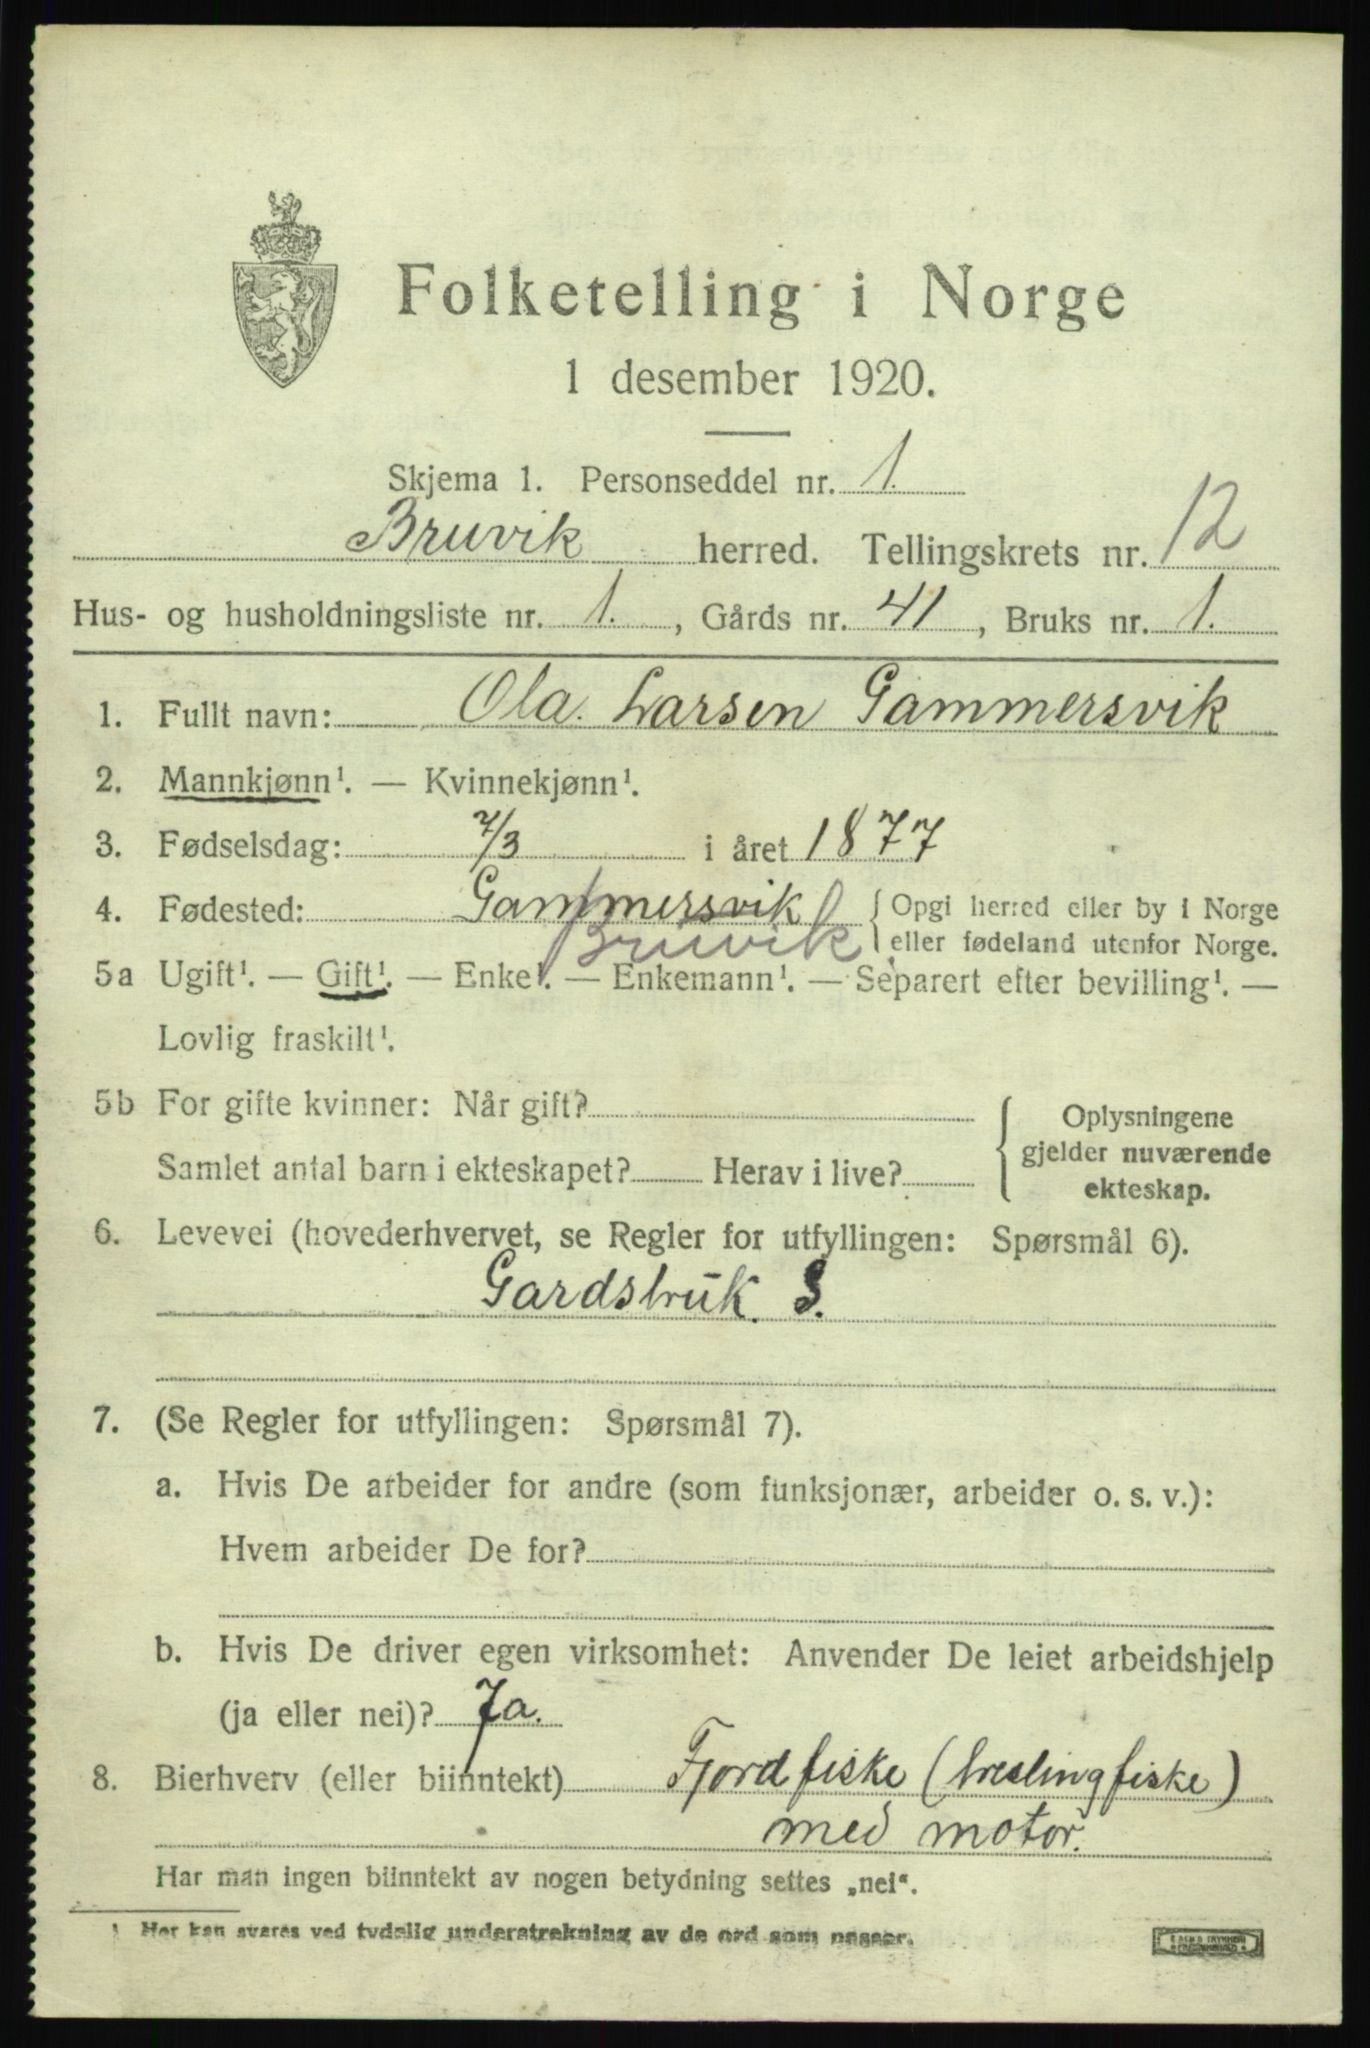 Folketelling i Norge
1 desember 1920.
Skjema 1. Personseddel nr. 1.
Bruvik herred. Tellingskrets nr. 12
Hus- og husholdningsliste nr. 1., Gårds nr. 41, Bruks nr. 1.
1. Fullt navn: Ola. Larsen Gammersvik
2. Mannkjønn¹. — Kvinnekjønn¹.
3. Fødselsdag: 7/3 i året 1877
4. Fødested: Gammersvik { Opgi herred eller by i Norge
Bruvik eller fødeland utenfor Norge.
5a Ugift¹. — Gift¹. — Enke¹. — Enkemann¹. — Separert efter bevilling¹. —
Lovlig fraskilt¹.
5b For gifte kvinner: Når gift? Oplysningene
Samlet antal barn i ekteskapet? Herav i live? gjelder nuværende
ekteskap.
6. Levevei (hovederhvervet, se Regler for utfyllingen: Spørsmål 6).
Gardsbruk. S.
7. (Se Regler for utfyllingen: Spørsmål 7).
a. Hvis De arbeider for andre (som funksjonær, arbeider o. s. v.):
Hvem arbeider De for?
b. Hvis De driver egen virksomhet: Anvender De leiet arbeidshjelp
(ja eller nei)? Ja.
8. Bierhverv (eller biinntekt) Fjordfiske (breslingfiske)
med motor.
Har man ingen biinntekt av nogen betydning settes „nei“.
¹ Her kan svares ved tydelig understrekning av de ord som passer.